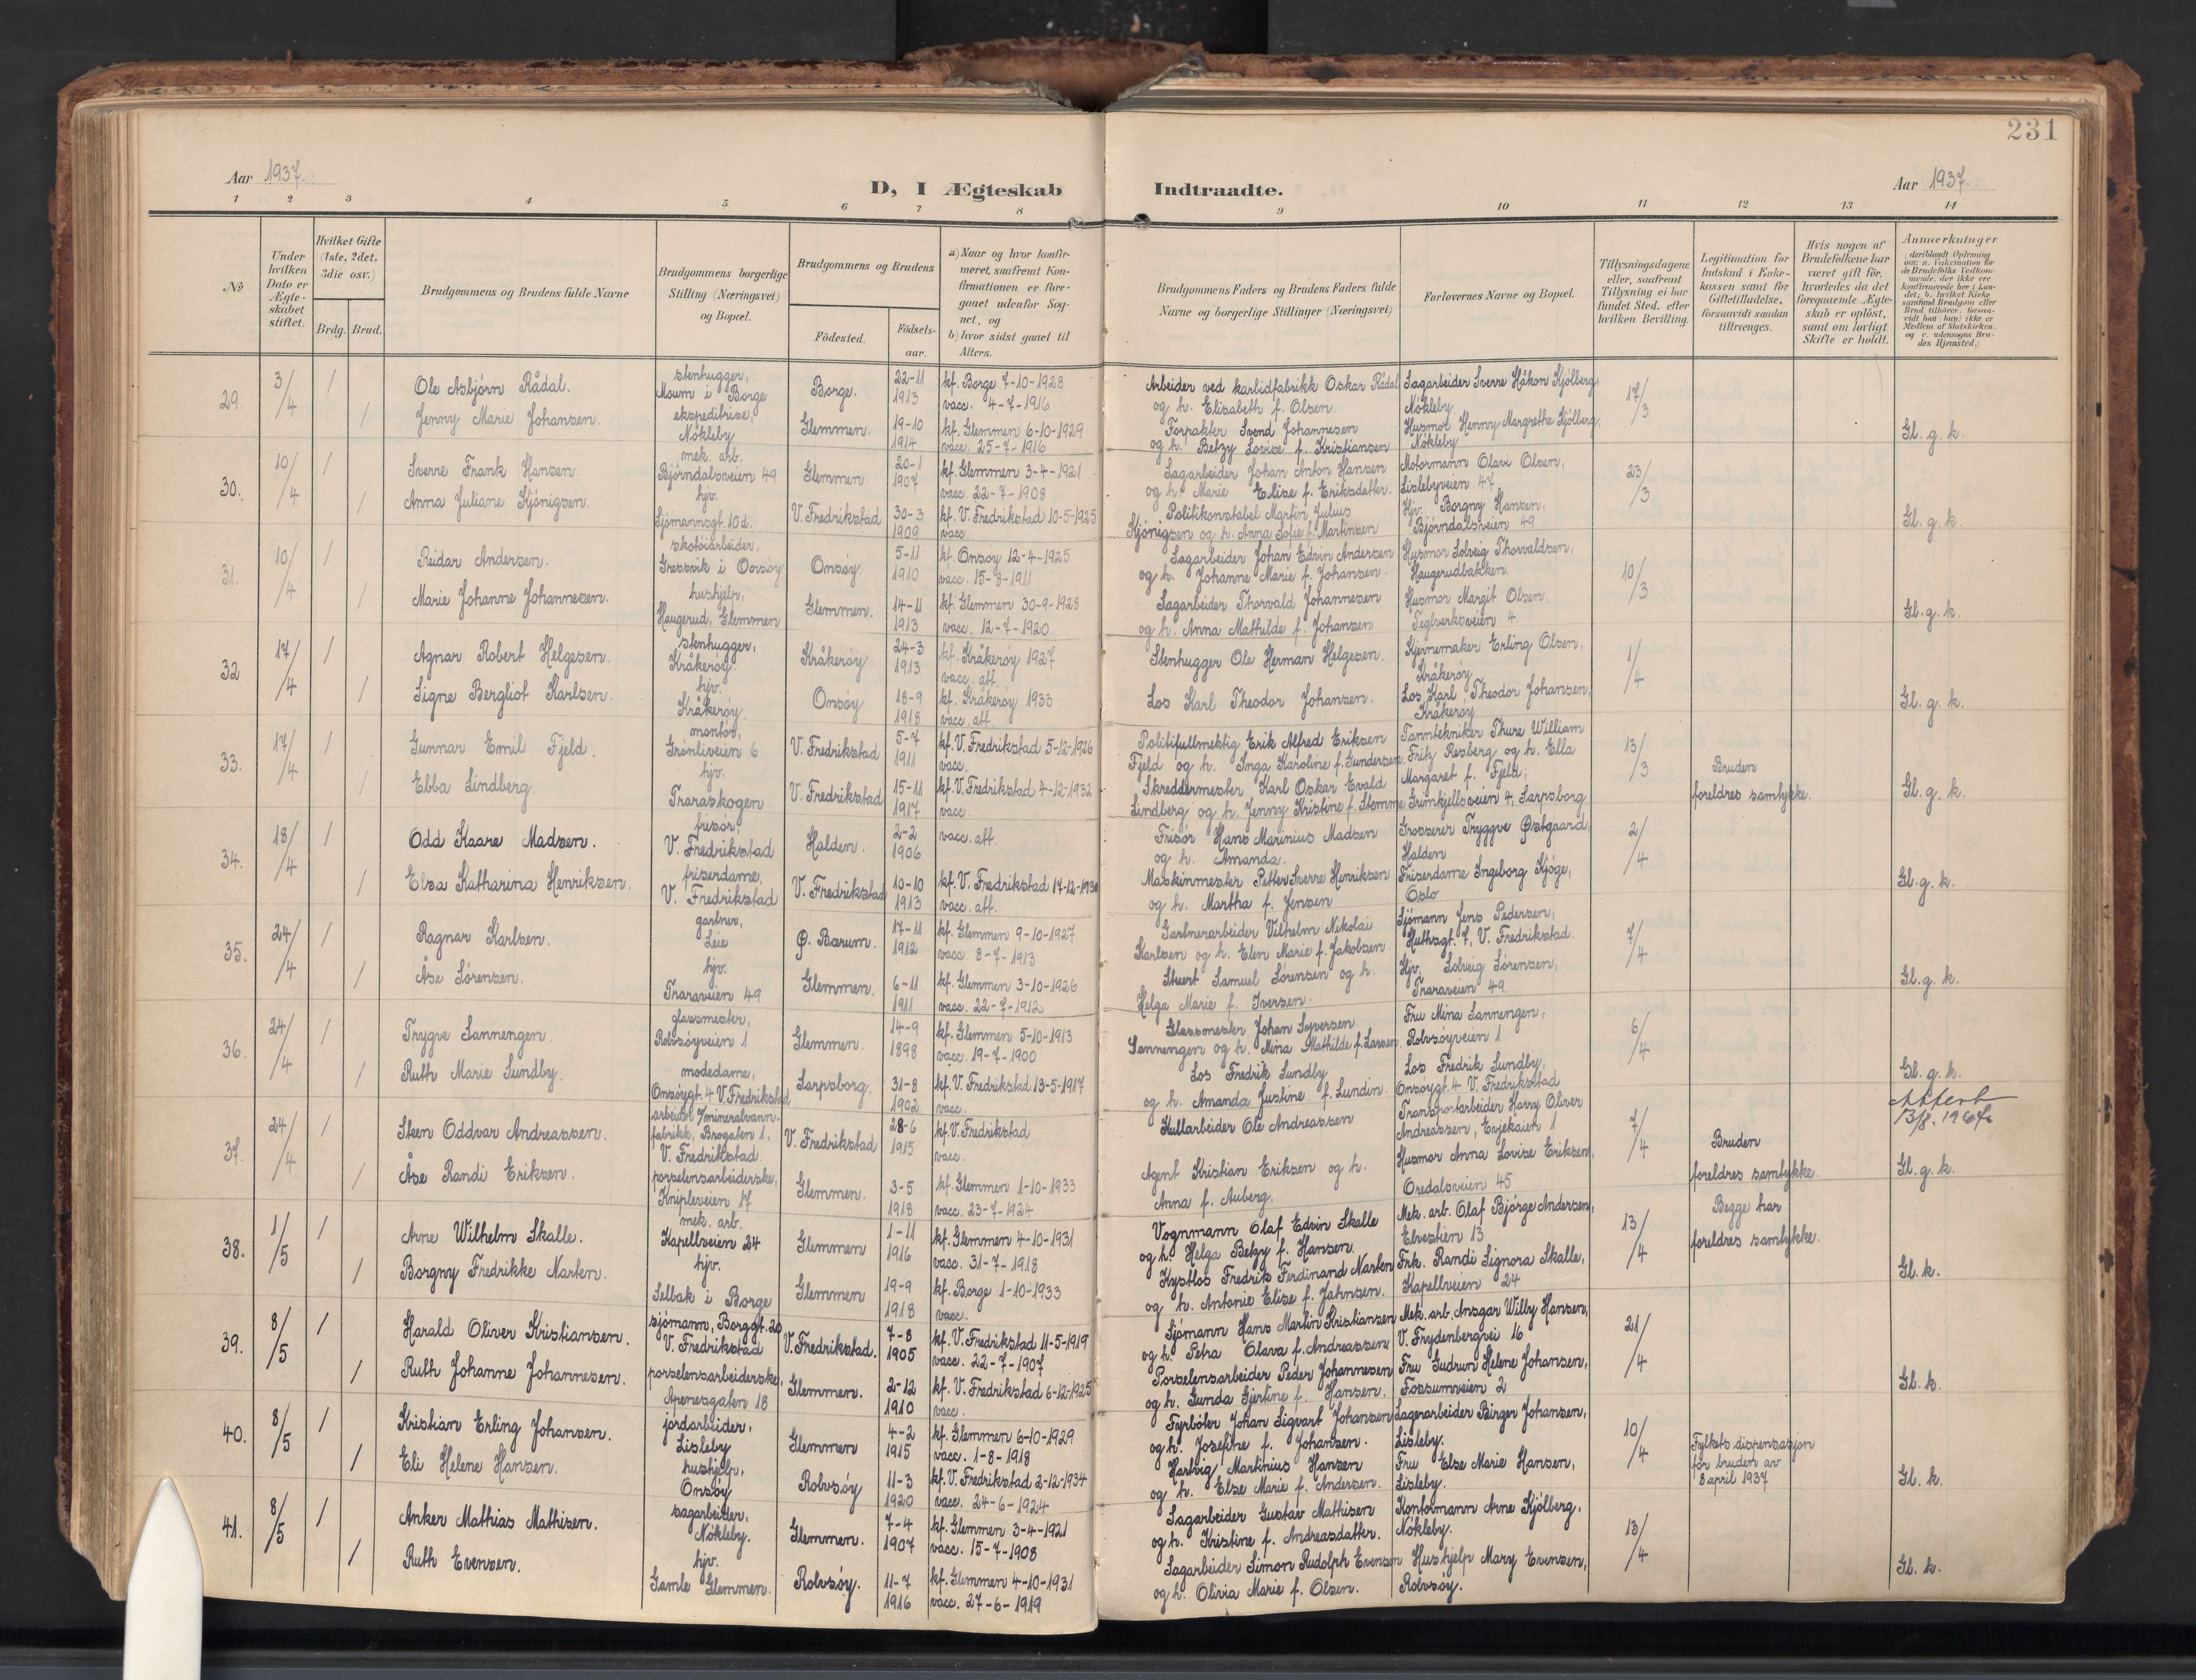 231
Aar 1937.
D, I Ægteskab Indtraadte.
Aar 1937.
1 2 3 4 5 6 7 8 9 10 11 12 13 14
№
Under hvilken Dato er Ægteskabet stiftet.
Hvilket Gifte (1ste, 2det, 3die osv.)
Brdg. Brud.
Brudgommens og Brudens fulde Navne
Brudgommens borgerlige Stilling (Næringsvei) og Bopæl.
Brudgommens og Brudens
Födested.
Födsels-aar.
a) Naar og hvor konfirmeret, saafremt Konfirmationen er foregaaet udenfor Sognet, og
b) hvor sidst gaaet til Alters.
Brudgommens Faders og Brudens Faders fulde Navne og borgerlige Stillinger (Næringsvei)
Forlovernes Navne og Bopæl.
Tillysningsdagene eller, saafremt Tillysning ei har fundet Sted, efter hvilken Bevilling.
Legitimation for Indskud i Enkekassen samt for Giftetilladelse, forsaavidt saadan tiltrænges.
Hvis nogen af Brudefolkene har været gift för, hvorledes da det foregaaende Ægteskab er oplöst, samt om lovligt Skifte er holdt.
Anmærkninger
29. 3/4 / Ole Asbjörn Rådal. stenhugger, Moum i Borge Borge. 22-11 1913 kf. Borge 7-10-1928 vacc. 4-7-1916 Arbeider ved karbidfabrikk Oskar Rådal og h. Elisabeth f. Olsen. Sagarbeider Sverre Håkon Kjölberg, Nökleby 17/3
/ Jenny Marie Johansen. ekspeditrise, Nökleby Glemmen. 19-10 1914 kf. Glemmen 6-10-1929 vacc. 25-7-1916 Forpakter Svend Johannesen og h. Betzy Lovise f. Kristiansen Husmor Henny Margrethe Kjölberg, Nökleby Gl. g. k.
30. 10/4 / Sverre Frank Hansen. mek. arb. Björndalsveien 49 Glemmen. 20-1 1907 kf. Glemmen 3-4-1921 vacc. 22-7-1908 Sagarbeider Johan Anton Hansen og h. Marie Elise f. Eriksdatter. Motormann Olavi Olsen, Lislebyveien 47 23/3
/ Anna Juliane Kjönigsen. hjv. Sjömannsgt. 10 d. V. Fredrikstad 30-3 1909 kf. V. Fredrikstad 10-5-1925 vacc. Politikonstabel Martin Julius Kjönigsen og h. Anna Sofie f. Martinsen Hjv. Borgny Hansen, Björndalsveien 49 Gl. g. k.
31. 10/4 / Reidar Andersen. skotöiarbeider, Gressvik i Onsöy Onsöy. 5-11 1910 kf. Onsöy 12-4-1925 vacc. 15-8-1911 Sagarbeider Johan Edvin Andersen og h. Johanne Marie f. Johansen. Husmor Solveig Thorvaldsen, Haugerudbakken. 10/3
/ Marie Johanne Johannesen. hushjelp, Haugerud, Glemmen Glemmen. 14-11 1913 kf. Glemmen 30-9-1928 vacc. 12-7-1920 Sagarbeider Thorvald Johannesen og h. Anna Mathilde f. Johansen Husmor Margit Olsen, Teglverksveien 4. Gl. g. k.
32 17/4 / Agnar Robert Helgesen. stenhugger, Kråkeröy Kråkeröy 24-3 1913 kf. Kråkeröy 1927 vacc. att. Stenhugger Ole Herman Helgesen. Kjernemaker Erling Olsen, Kråkeröy 1/4
/ Signe Bergliot Karlsen. hjv. Kråkeröy Onsöy 18-9 1918 kf. Kråkeröy 1933 vacc. att. Los Karl Theodor Johansen. Los Karl Theodor Johansen, Kråkeröy Gl. g. k.
33. 17/4 / Gunnar Emil Fjeld. montör, Grönliveien 6 V. Fredrikstad 5-7 1911 kf. V. Fredrikstad 5-12-1926 vacc. Politifullmektig Erik Alfred Eriksen Fjeld og h. Inga Karoline f. Gundersen. Tanntekniker Thure William Fritz Resberg og h. Ella Margaret f. Fjeld, 13/3 Bruden
/ Ebba Lindberg. hjv. Traraskogen V. Fredrikstad 15-11 1917 kf. V. Fredrikstad 4-12-1932 vacc. Skreddermester Karl Oskar Evald Lindberg og h. Jenny Kristine f. Stemme Grimkjellsveien 4, Sarpsborg foreldres samtykke. Gl. g. k.
34. 18/4 / Odd Kaare Madsen. frisör, V. Fredrikstad Halden. 2-2 1906 vacc. att. Frisör Hans Marinius Madsen og h. Amanda. Grosserer Tryggve Østgaard, Halden 2/4
/ Elsa Katharina Henriksen. friserdame, V. Fredrikstad V. Fredrikstad 10-10 1913 kf. V. Fredrikstad 17-12-1930 vacc. att. Maskinmester Petter Sverre Henriksen og h. Martha f. Jensen Friserdame Ingeborg Kjöge, Oslo Gl. g. k.
35. 24/4 / Ragnar Karlsen. gartner, Leie Ø. Bærum. 17-11 1912 kf. Glemmen 9-10-1927 vacc. 8-7-1913 Gartnerarbeider Vilhelm Nikolai Karlsen og h. Elen Marie f. Jakobsen. Sjömann Jens Pedersen, Huthsgt. 7, V. Fredrikstad. 7/4
/ Åse Sörensen. hjv. Traraveien 49 Glemmen. 6-11 1911 kf. Glemmen 3-10-1926 vacc. 22-7-1912 Stuert Samuel Sörensen og h. Helga Marie f. Iversen. Hjv. Solveig Sörensen, Traraveien 49. Gl. g. k.
36. 24/4 / Trygve Sannengen. glassmester, Rolvsöyveien 1 Glemmen. 14-9 1898 kf. Glemmen 5-10-1913 vacc. 19-7-1900 Glassmester Johan Syversen Sannengen og h. Mina Mathilde f. Larsen. Fru Mina Sannengen, Rolvsöyveien 1 6/4
/ Ruth Marie Lundby. modedame, Onsöygt. 4 V. Fredrikstad Sarpsborg. 31-8 1902 kf. V. Fredrikstad 13-5-1917 vacc. Los Fredrik Lundby og h. Amanda Justine f. Lundin. Los Fredrik Lundby, Onsöygt. 4 V. Fredrikstad Gl. g. k.
37. 24/4 / Steen Oddvar Andreassen. arbeider v/mineralvannfabrikk, Brogaten 1, V. Fredrikstad. V. Fredrikstad 28-6 1915 kf. V. Fredrikstad vacc. Kullarbeider Ole Andreassen Transportarbeider Harry Oliver Andreassen, Evjekaien 1 7/4 Bruden 13/8. 1964
/ Åse Randi Eriksen. porselensarbeiderske, Knipleveien 17 Glemmen. 3-5 1918 kf. Glemmen 1-10-1933 vacc. 23-7-1924 Agent Kristian Eriksen og h. Anna f. Auberg. Husmor Anna Lovise Eriksen, Oredalsveien 45 foreldres samtykke. Gl. g. k.
38. 1/5 / Arne Wilhelm Skalle. mek. arb. Kapellveien 24 Glemmen 1-11 1916 kf. Glemmen 4-10-1931 vacc. 31-7-1918 Vognmann Olaf Edvin Skalle og h. Helga Betzy f. Hansen. Mek. arb. Olaf Bjórge Andersen, Elvestien 13 13/4 Begge har foreldres samtykke.
/ Borgny Fredrikke Narten. hjv. Selbak i Borge Glemmen 19-9 1918 kf. Borge 1-10-1933 vacc. Kystlos Fredrik Ferdinand Narten og h. Antonie Elise f. Jahnsen. Frk. Randi Signora Skalle, Kapellveien 24 Gl. k.
39. 8/5 / Harald Oliver Kristiansen. sjömann, Borggt. 20 V. Fredrikstad V. Fredrikstad. 7-8 1905 kf. V. Fredrikstad 11-5-1919 vacc. 22-7-1907 Sjömann Hans Martin Kristiansen og h. Petra Olava f. Andreassen Mek. arb. Ansgar Wilby Hansen, V. Frydenbergvei 16 21/4
/ Ruth Johanne Johannesen. porselensarbeiderske, Apenesgaten 18 Glemmen. 2-12 1910 kf. V. Fredrikstad 6-12-1925 vacc. Porselensarbeider Peder Johannesen og h. Gunda Gjertine f. Hansen. Fru Gudrun Helene Johansen, Fossumveien 2 Gl. k.
40. 8/5 / Kristian Erling Johansen. jordarbeider, Lisleby Glemmen 4-2 1915 kf. Glemmen 6-10-1929 vacc. 1-8-1918 Fyrböter Johan Sigvart Johansen og h. Josefine f. Johansen. Lagerarbeider Birger Johansen, Lisleby. 10/4 Fylkets dispensasjon for bruden av 8 april 1937
/ Eli Helene Hansen. hushjelp, Onsöy Rolvsöy 11-3 1920 kf. V. Fredrikstad 2-12-1934 vacc. 24-6-1924 Hartvig Martinius Hansen og h. Else Marie f. Andersen. Fru Else Marie Hansen, Lisleby. Gl. k.
41. 8/5 / Anker Mathias Mathisen. sagarbeider, Nökleby. Glemmen. 7-4 1907 kf. Glemmen 3-4-1921 vacc. 15-7-1908 Sagarbeider Gustav Mathisen og h. Kristine f. Andreasdatter. Kontormann Arne Kjölberg, Nökleby. 13/4
/ Ruth Evensen. hjv. Gamle Glemmen. Rolvsöy. 11-7 1916 kf. Glemmen 4-10-1931 vacc. 27-6-1919 Sagarbeider Simon Rudolph Evensen og h. Olivia Marie f. Olsen. Hushjelp Mary Evensen, Rolvsöy. Gl. k.